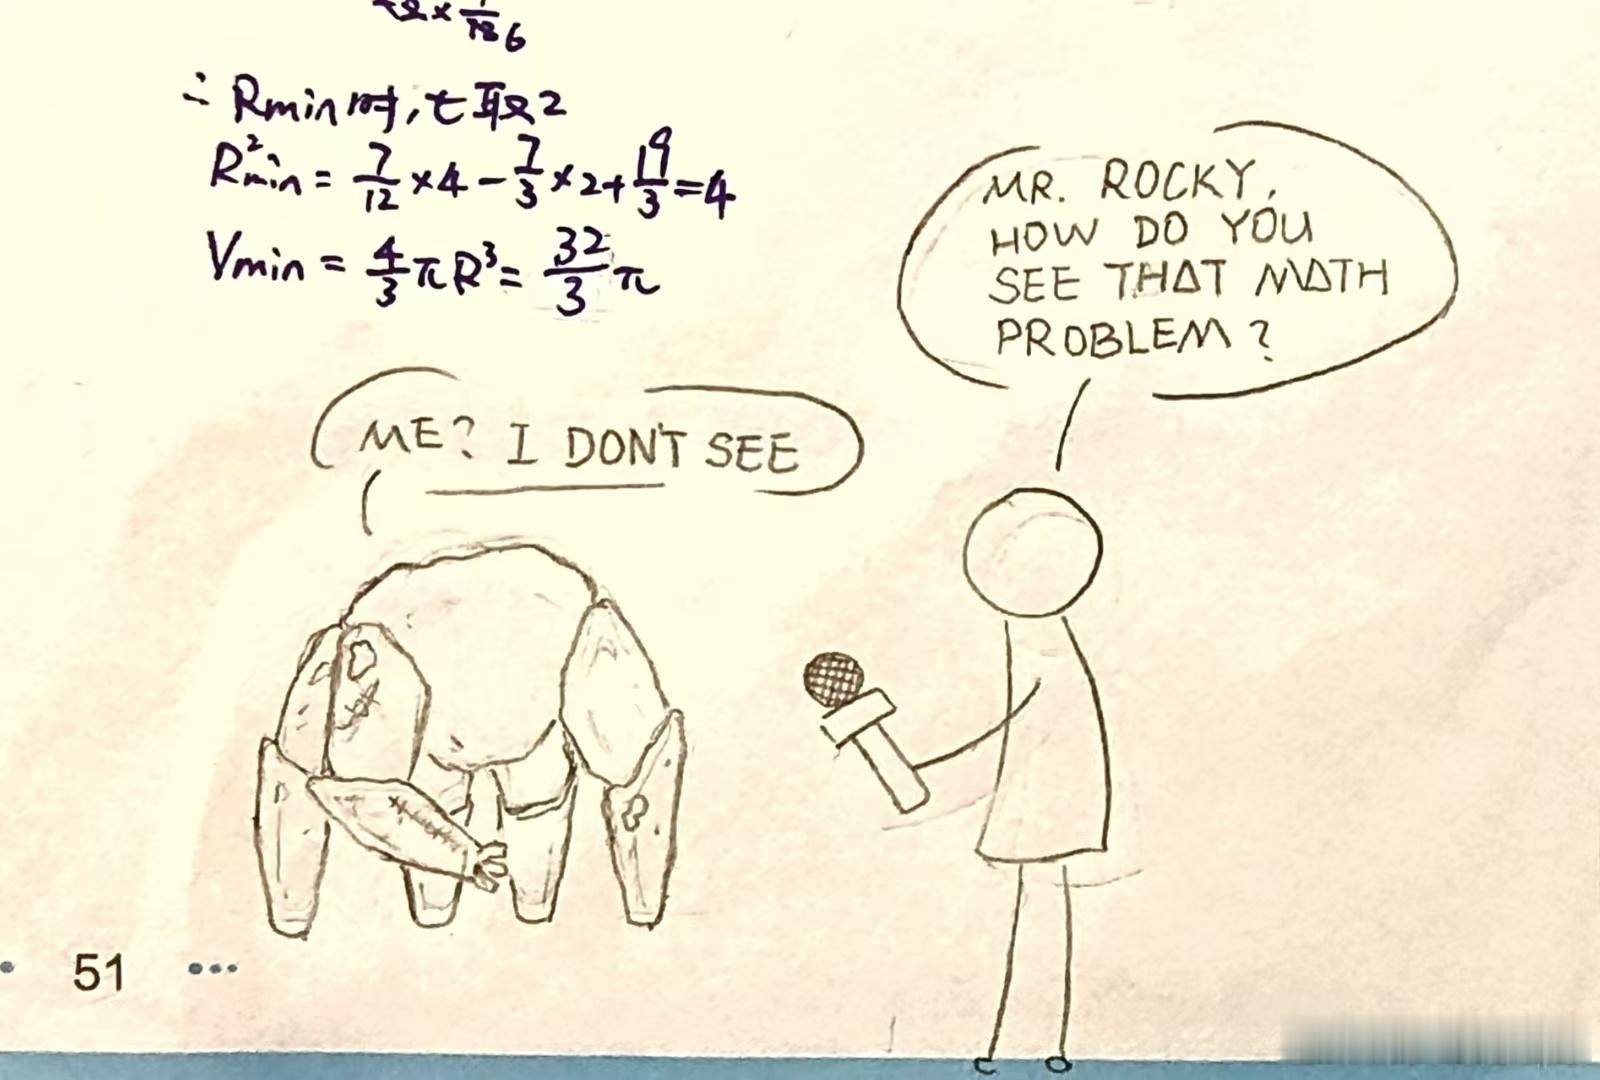 ∴ Rmin时,t取2
R²min = 7/12 ×4 - 7/3 ×2 + 19/3 = 4
Vmin = 4/3 πR³ = 32/3 π
MR. ROCKY,
HOW DO YOU
SEE THAT MATH
PROBLEM?
ME? I DON'T SEE
51